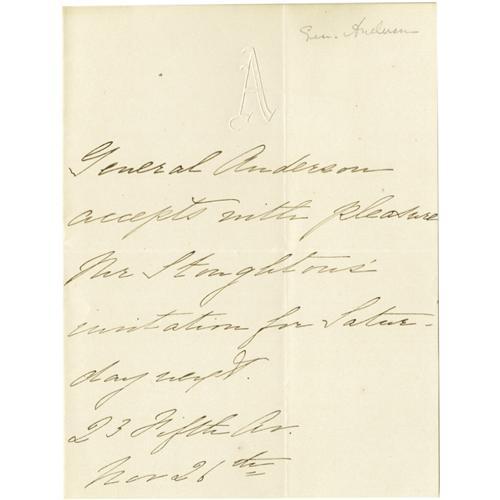 Gen. Anderson
A
General Anderson
accepts with pleasure
Mr Stoughtons'
invitation for Satur-
day next.
23 Fifth Av.
Nov 26th